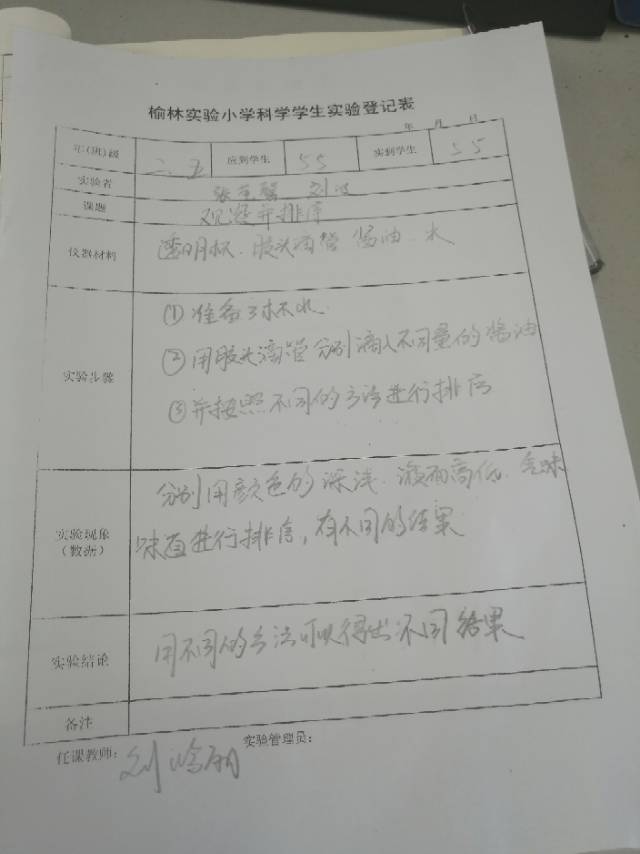 榆林实验小学科学学生实验登记表
年 月 日
年(班)级 二.五 应到学生 55 实到学生 55
实验者
课题 观察并排序
仪器材料 透明杯、胶头滴管 酱油、水
实验步骤
①准备3杯水
②用胶头滴管分别滴入不同量的酱油
③并按照不同的方法进行排序
实验现象(数据)
分别用颜色的深浅、液面高低、气味
味道进行排序,有不同的结果
实验结论 用不同的方法可以得出不同结果
备注
任课教师: 实验管理员: